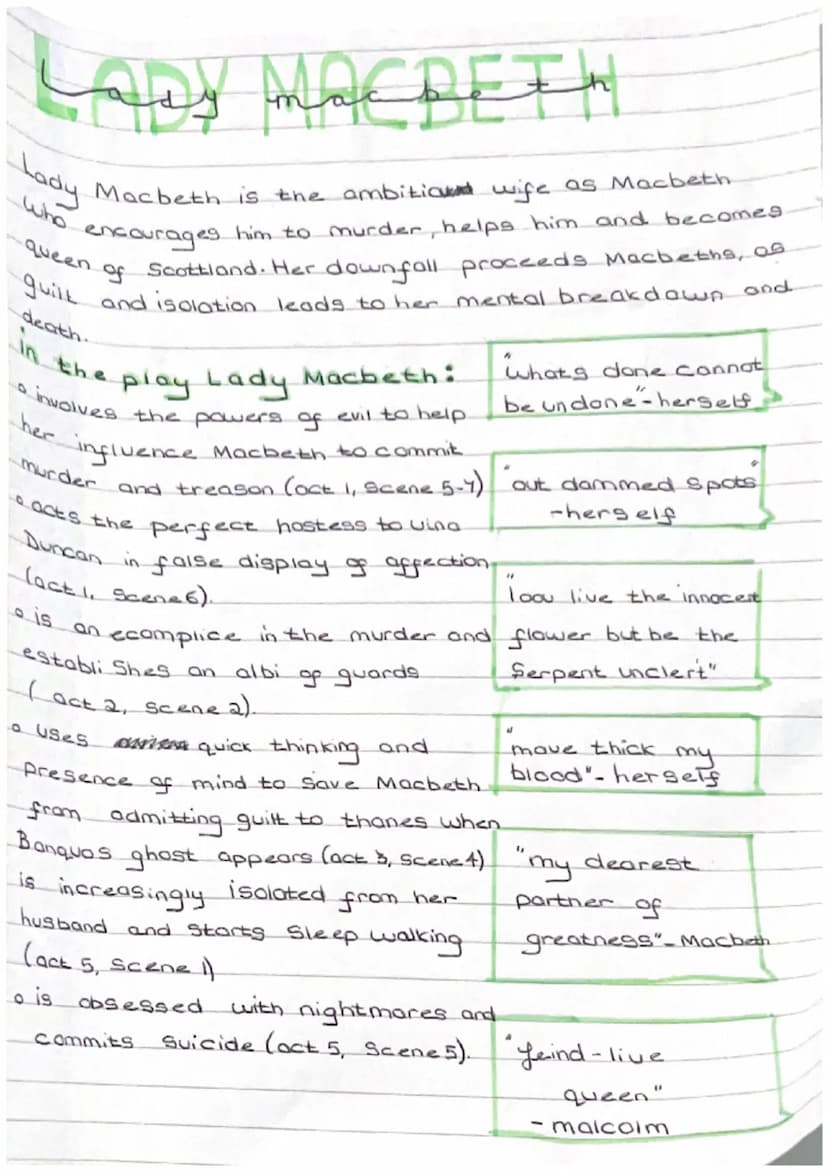 LADY MACBETH
Lady macbeth
Lady Macbeth is the ambitious wife as Macbeth
who encourages him to murder, helps him and becomes
queen of Scottland. Her downfall proceeds Macbeths, as
guilt and isolation leads to her mental breakdown and
death.
in the play Lady Macbeth:
involves the powers of evil to help
her influence Macbeth to commit
murder and treason (act 1, scene 5-7)
acts the perfect hostess to
Duncan in false display of affection
(act 1, Scene 6).
is an ecomplice in the murder and
establi Shes an albi of guards
( act 2, scene 2).
uses quick thinking and
presence of mind to save Macbeth
from admitting guilt to thanes when
Banquos ghost appears (act 3, scene 4)
is increasingly isolated from her
husband and starts Sleep walking
(act 5, scene 1)
is obsessed with nightmares and
commits suicide (act 5, Scene 5).
"whats done cannot
be undone"-herself
"out dammed spots"
-herself
"look live the innocent
flower but be the
Serpent unclert"
"move thick my
blood"- herself
"my dearest
partner of
greatness"- Macbeth
"feind-live
queen"
- malcolm